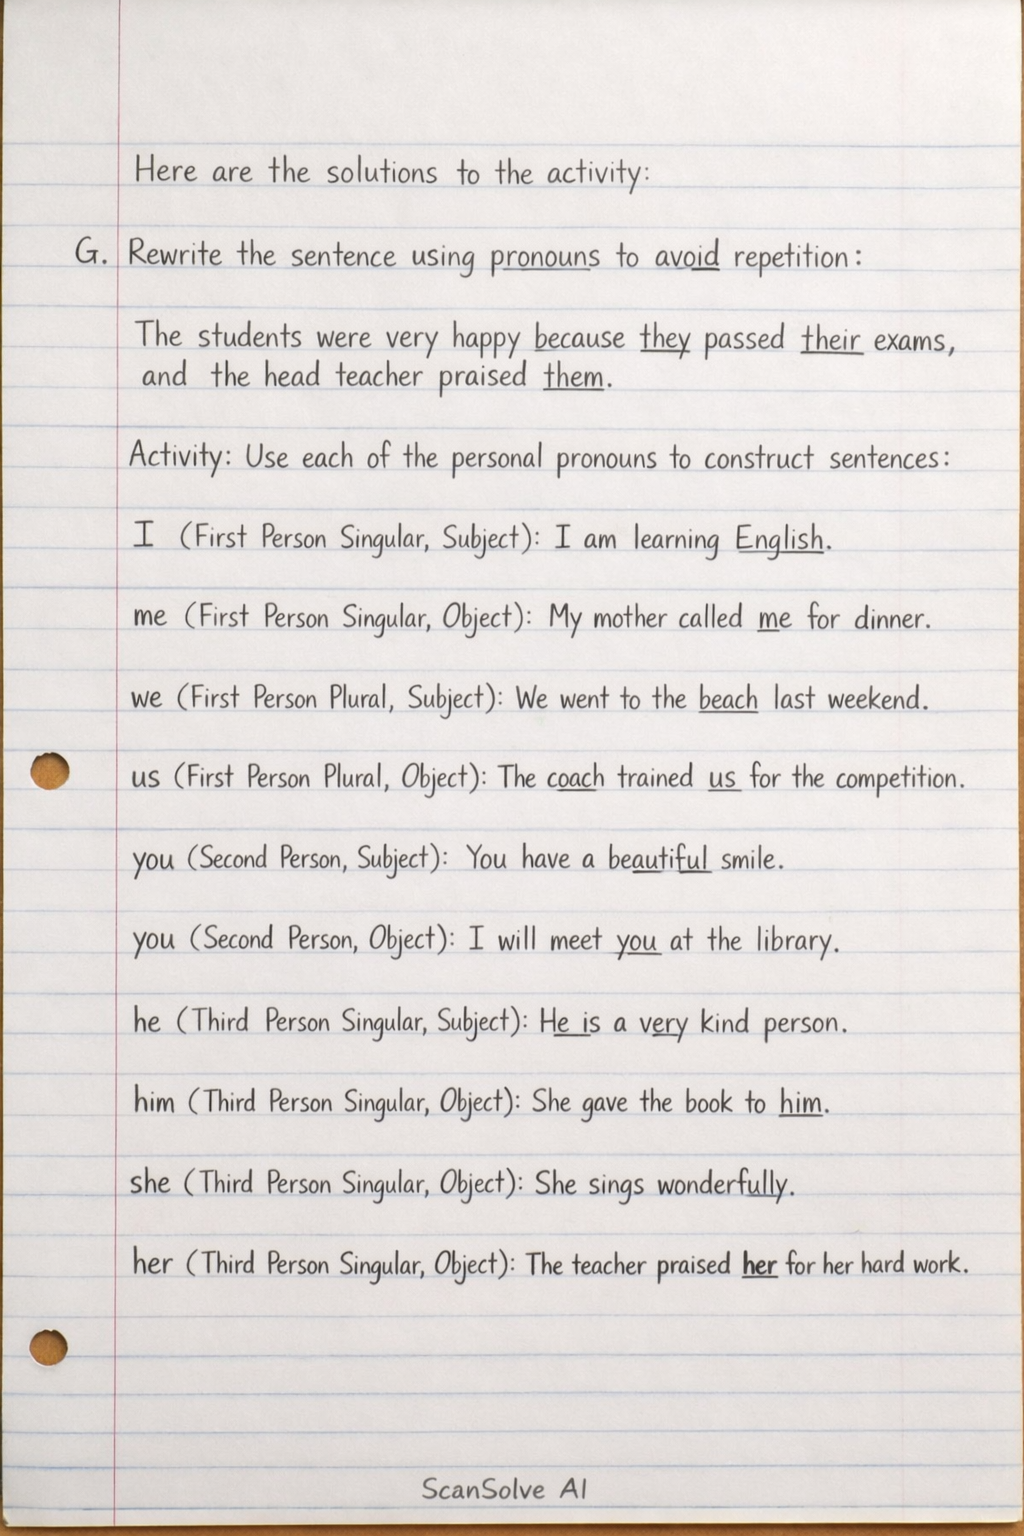 Here are the solutions to the activity:
G. Rewrite the sentence using pronouns to avoid repetition:
The students were very happy because they passed their exams,
and the head teacher praised them.
Activity: Use each of the personal pronouns to construct sentences:
I (First Person Singular, Subject): I am learning English.
me (First Person Singular, Object): My mother called me for dinner.
we (First Person Plural, Subject): We went to the beach last weekend.
us (First Person Plural, Object): The coach trained us for the competition.
you (Second Person, Subject): You have a beautiful smile.
you (Second Person, Object): I will meet you at the library.
he (Third Person Singular, Subject): He is a very kind person.
him (Third Person Singular, Object): She gave the book to him.
she (Third Person Singular, Object): She sings wonderfully.
her (Third Person Singular, Object): The teacher praised her for her hard work.
ScanSolve AI